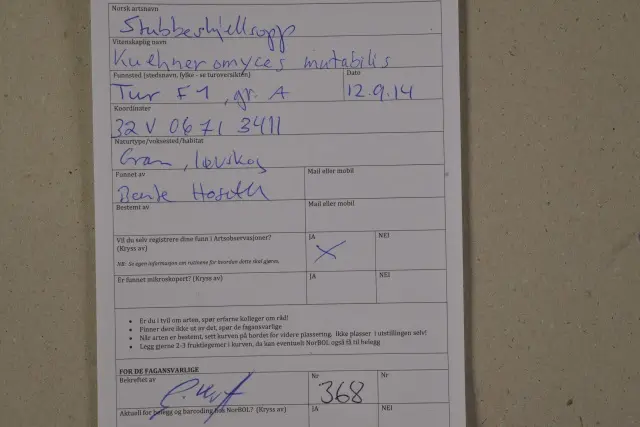 Norsk artsnavn
Stubbeskjellsopp
Vitenskaplig navn
Kuehneromyces mutabilis
Funnsted (stedsnavn, fylke - se turoversikten) Dato
Tur F1, gr. A 12.9.14
Koordinater
32 V 0671 3411
Naturtype/voksested/habitat
Gran, løvskog
Funnet av Mail eller mobil
Bente
Bestemt av Mail eller mobil
Vil du selv registrere dine funn i Artsobservasjoner? JA NEI
(Kryss av) X
NB: Se egen informasjon om rutinene for hvordan dette skal gjøres.
Er funnet mikroskopert? (Kryss av) JA NEI
• Er du i tvil om arten, spør erfarne kolleger om råd!
• Finner dere ikke ut av det, spør de fagansvarlige
• Når arten er bestemt, sett kurven på bordet for videre plassering. Ikke plasser i utstillingen selv!
• Legg gjerne 2-3 fruktlegemer i kurven, da kan eventuelt NorBOL også få til belegg
FOR DE FAGANSVARLIGE
Bekreftet av Nr Nr
368
Aktuell for belegg og barcoding hos NorBOL? (Kryss av) JA NEI